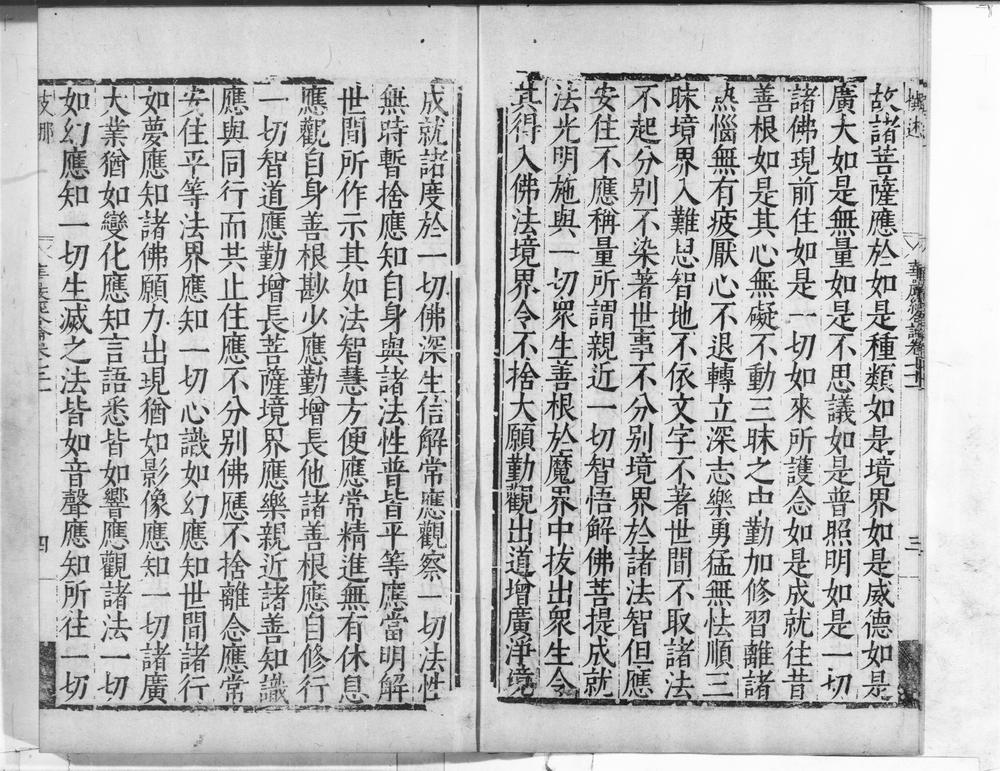 撰述
故諸菩薩應於如是種類如是境界如是威德如是
廣大如是無量如是不思議如是普照明如是一切
諸佛現前住如是一切如來所護念如是成就往昔
善根如是其心無礙不動三昧之中勤加修習離諸
熱惱無有疲厭心不退轉立深志樂勇猛無怯順三
昧境界入難思智地不依文字不著世間不取諸法
不起分別不染著世事不分別境界於諸法智但應
安住不應稱量所謂親近一切智悟解佛菩提成就
法光明施與一切眾生善根於魔界中拔出眾生令
其得入佛法境界令不捨大願勤觀出道增廣淨境
三
成就諸度於一切佛深生信解常應觀察一切法性
無時暫捨應知自身與諸法性普皆平等應當明解
世間所作示其如法智慧方便應常精進無有休息
應觀自身善根尠少應勤增長他諸善根應自修行
一切智道應勤增長菩薩境界應樂親近諸善知識
應與同行而共止住應不分別佛應不捨離念應常
安住平等法界應知一切心識如幻應知世間諸行
如夢應知諸佛願力出現猶如影像應知一切諸廣
大業猶如變化應知言語悉皆如響應觀諸法一切
如幻應知一切生滅之法皆如音聲應知所往一切
支那
四